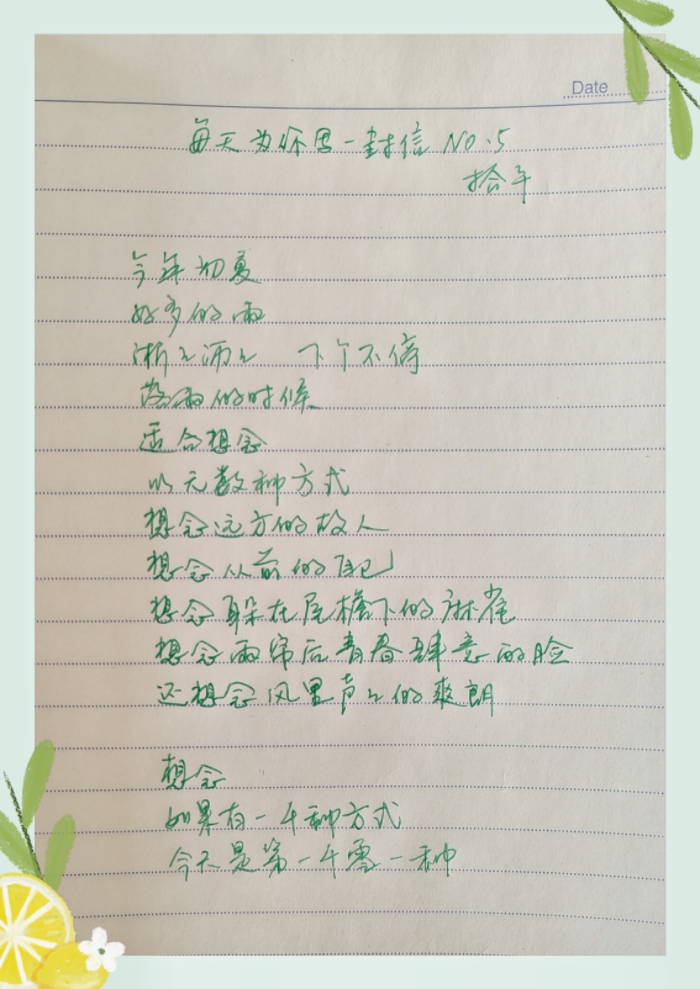 Date
每天为你写一封信 NO.5
拾年
今年初夏
好多的雨
淅淅沥沥 下个不停
落雨的时候
适合想念
以无数种方式
想念远方的故人
想念从前的自己
想念躲在屋檐下的麻雀
想念雨帘后青春肆意的脸
还想念风里声声的爽朗
想念
如果有一千种方式
今天是第一千零一种